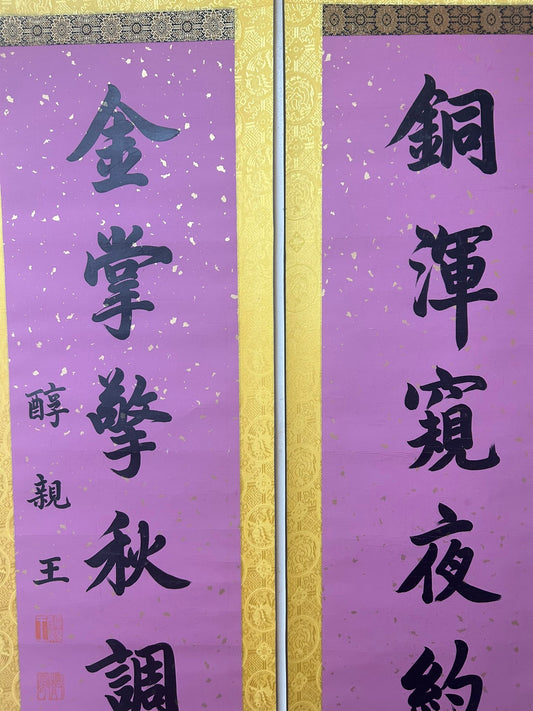 銅渾窺夜約
金掌擎秋調
醇親王